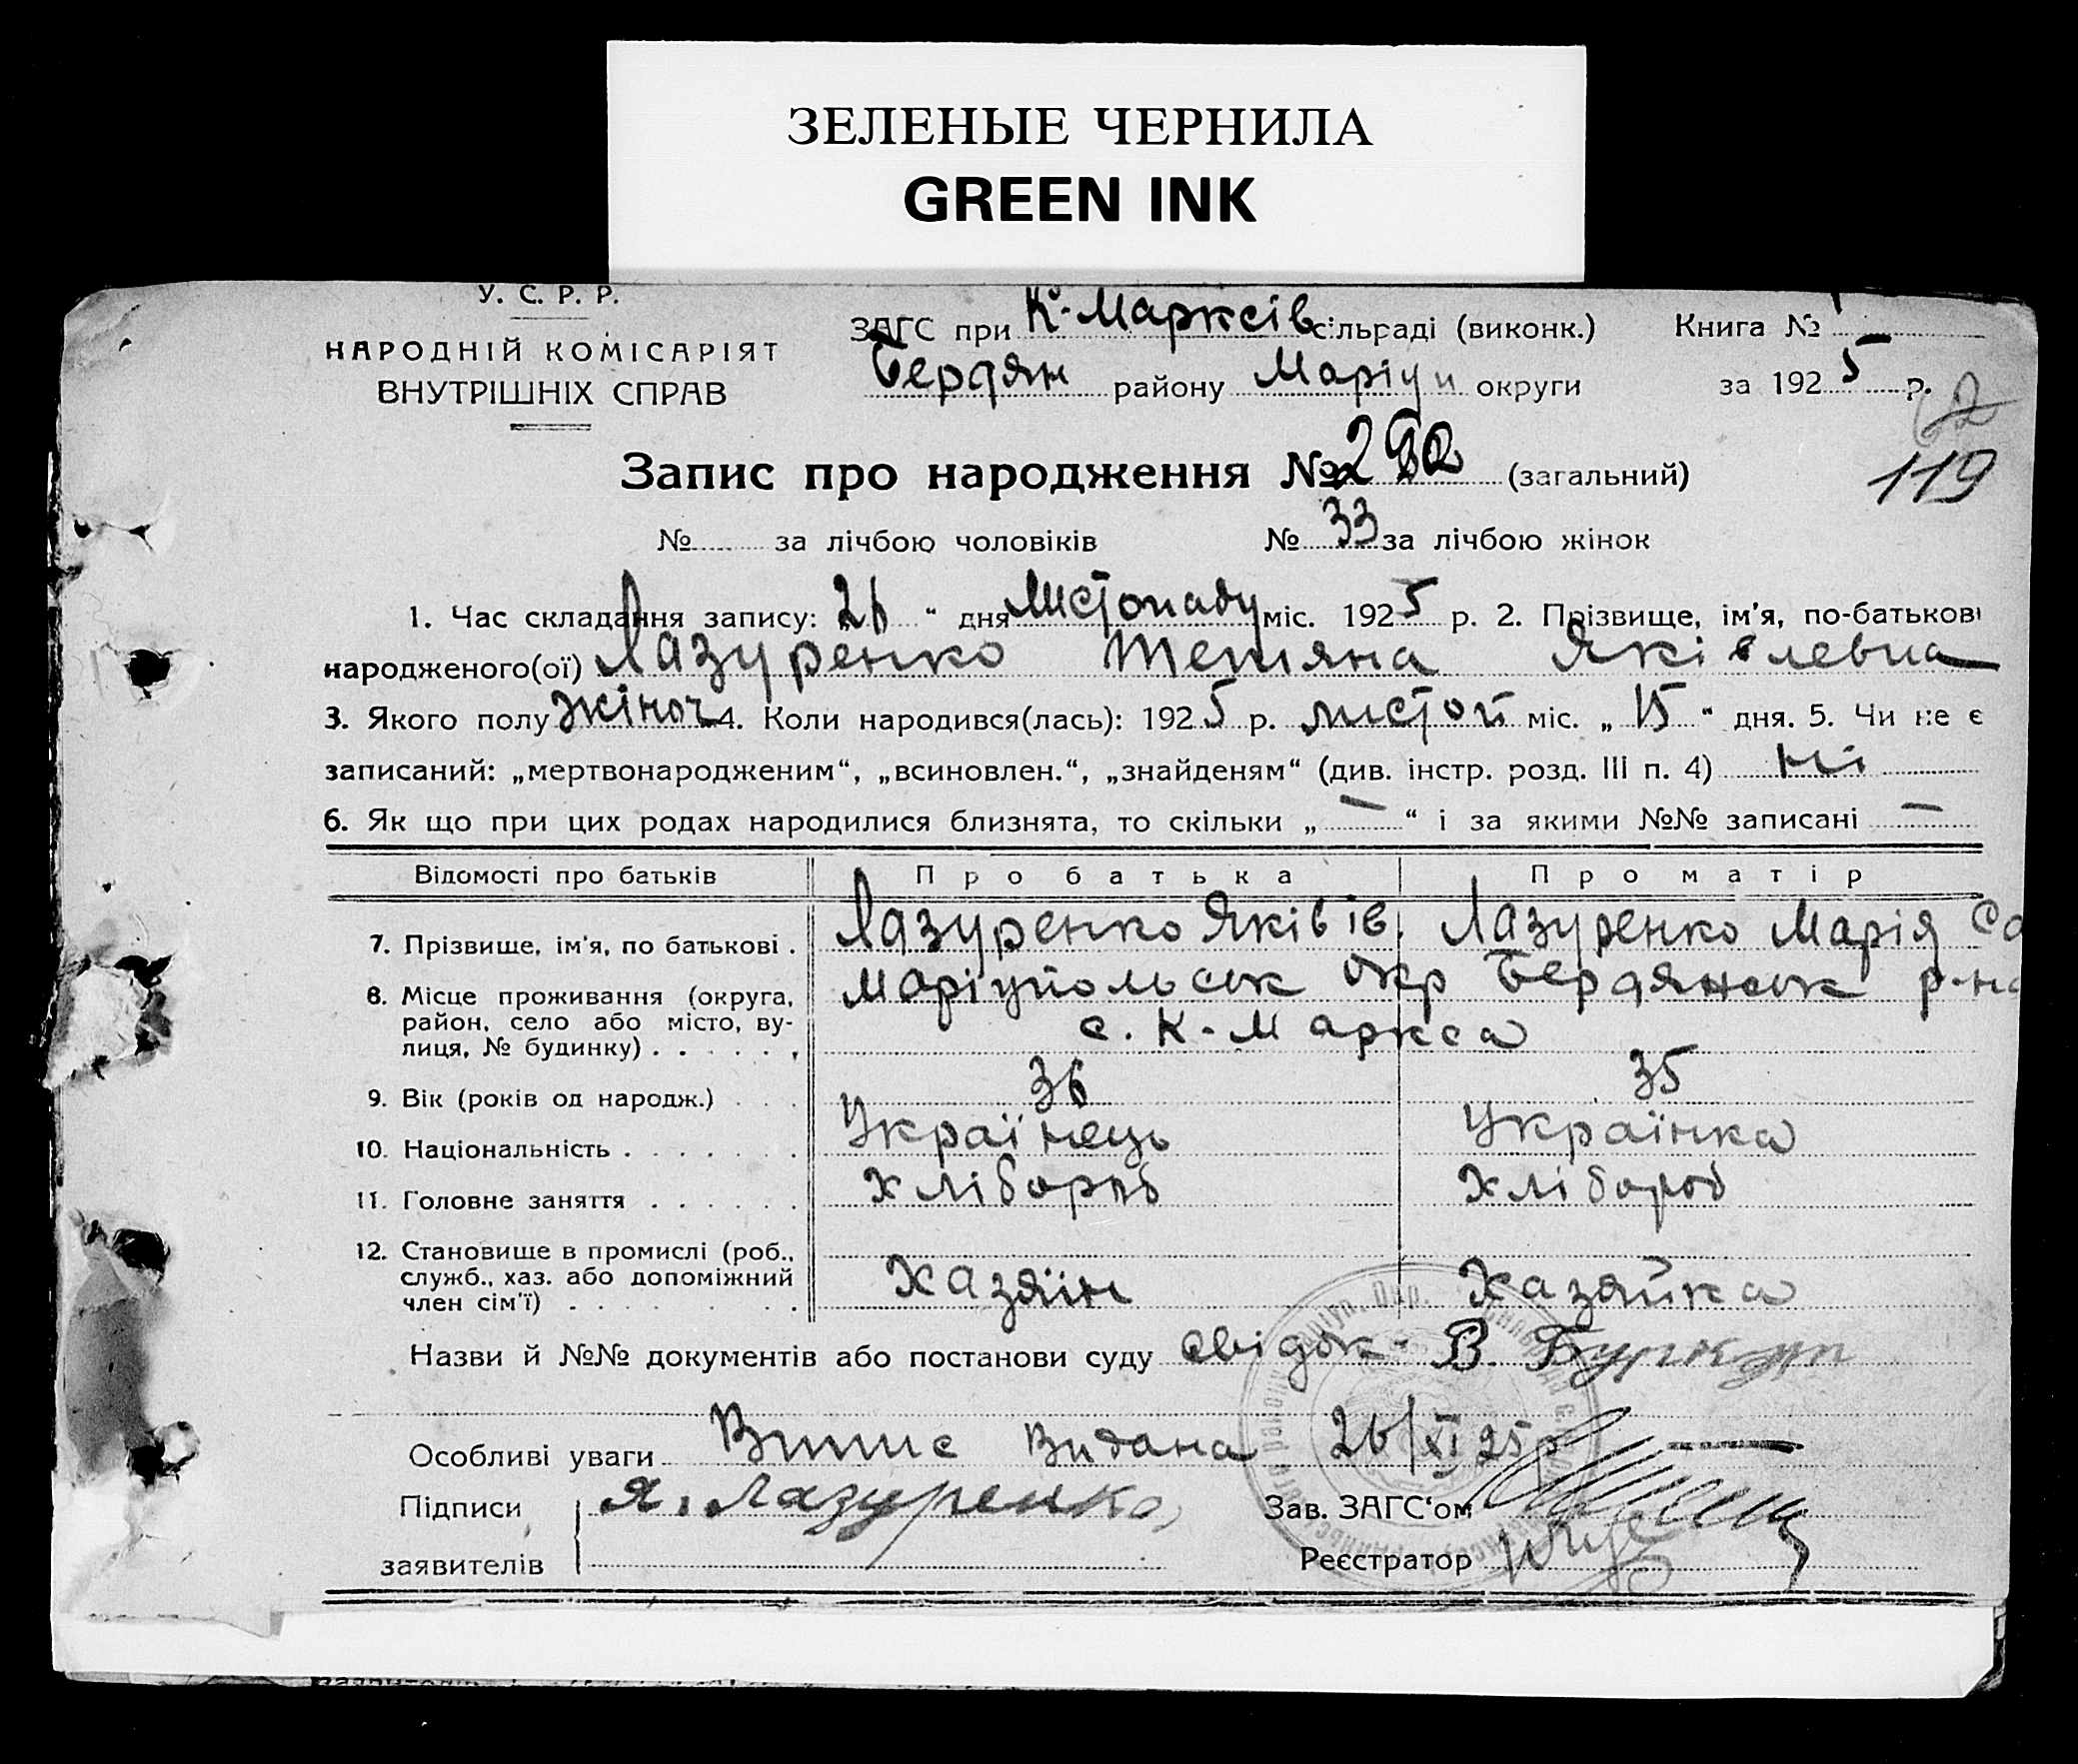 ЗЕЛЕНЫЕ ЧЕРНИЛА
GREEN INK
У. С. Р. Р.
НАРОДНІЙ КОМІСАРІЯТ
ВНУТРІШНІХ СПРАВ
ЗАГС при К-Марксів сільраді (виконк.) Книга №
Бердян району Маріуп округи за 1925 р.
62
119
Запис про народження № (загальний)
№ за лічбою чоловіків № 33 за лічбою жінок
1. Час складання запису: „26“ дня Листопаду міс. 1925 р. 2. Прізвище, ім'я, по-батькові
народженого(ої) Лазуренко Тетяна Яківлевна
3. Якого полу Жіноч 4. Коли народився(лась): 1925 р. листоп міс. „15“ дня. 5. Чи не є
записаний: „мертвонародженим“, „всиновлен.“, „знайденям“ (див. інстр. розд. III п. 4) ні
6. Як що при цих родах народилися близнята, то скільки „—“ і за якими №№ записані —
Відомості про батьків Про батька Про матір
7. Прізвище, ім'я, по батькові . Лазуренко Яків ів. Лазуренко Марія Са
8. Місце проживання (округа, Маріупольськ окр Бердянськ р-на
район, село або місто, ву-
лиця, № будинку) . . . . . , с. К-Маркса
9. Вік (років од народж.) . . . 36 35
10. Національність . . . . . . . Українець Українка
11. Головне заняття . . . . . . Хлібороб Хлібороб
12. Становище в промислі (роб.,
служб., хаз. або допоміжний Хазяїн Хазяйка
член сім'ї) . . . . . . . . .
Назви й №№ документів або постанови суду свідок - В.
Особливі уваги Випис Видана 26/XI 25р —
Підписи Я. Лазуренко Зав. ЗАГС'ом
заявителів Реєстратор